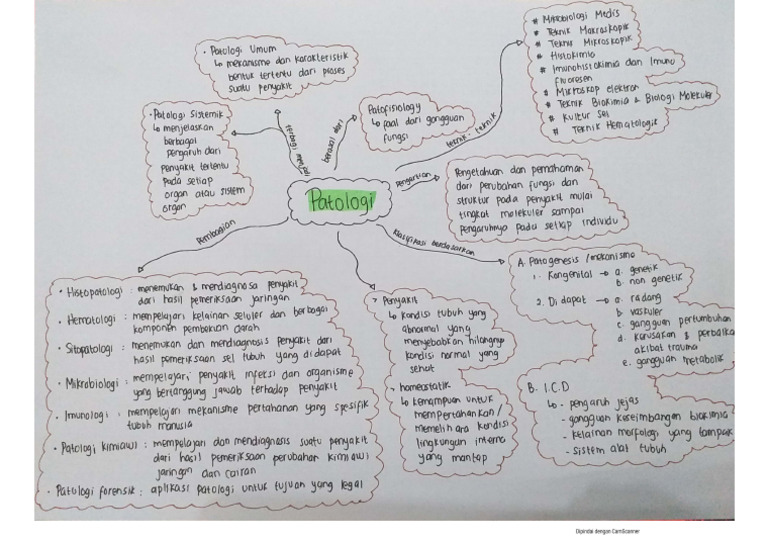 • Patologi Umum
↳ mekanisme dan karakteristik
bentuk tertentu dari proses
suatu penyakit
• Patologi Sistemik
↳ menjelaskan
berbagai
pengaruh dari
penyakit tertentu
pada setiap
organ atau sistem
organ
terbagi menjadi
berawal dari
Patofisiology
↳ faal dari gangguan
fungsi
teknik-teknik
# Mikrobiologi Medis
# Teknik Makroskopik
# Teknik Mikroskopik
# Histokimia
# Imunohistokimia dan Imuno
fluoresen
# Mikroskop elektron
# Teknik Biokimia & Biologi Molekuler
# Kultur Sel
# Teknik Hematologik
Patologi
pengertian
Pengetahuan dan pemahaman
dari perubahan fungsi dan
struktur pada penyakit mulai
tingkat molekuler sampai
pengaruhnya pada setiap individu
pembagian
• Histopatologi : menemukan & mendiagnosa penyakit
dari hasil pemeriksaan jaringan
• Hematologi : mempelajari kelainan seluler dan berbagai
komponen pembekuan darah
• Sitopatologi : menemukan dan mendiagnosis penyakit dari
hasil pemeriksaan sel tubuh yang didapat
• Mikrobiologi : mempelajari penyakit infeksi dan organisme
yang bertanggung jawab terhadap penyakit
• Imunologi : mempelajari mekanisme pertahanan yang spesifik
tubuh manusia
• Patologi kimiawi : mempelajari dan mendiagnosis suatu penyakit
dari hasil pemeriksaan perubahan kimiawi
jaringan dan cairan
• Patologi forensik : aplikasi patologi untuk tujuan yang legal
• Penyakit
↳ kondisi tubuh yang
abnormal yang
menyebabkan hilangnya
kondisi normal yang
sehat
• homeostatik
↳ kemampuan untuk
mempertahankan/
memelihara kondisi
lingkungan interna
yang mantap
klasifikasi berdasarkan
A. Patogenesis / mekanisme
1. Kongenital → a. genetik
b. non genetik
2. Di dapat → a. radang
b. vaskuler
c. gangguan pertumbuhan
d. kerusakan & perbaika
akibat trauma
e. gangguan metabolik
B. I.C.D
↳ - pengaruh jejas
- gangguan keseimbangan biokimia
- kelainan morfologi yang tampak
- sistem alat tubuh
Dipindai dengan CamScanner